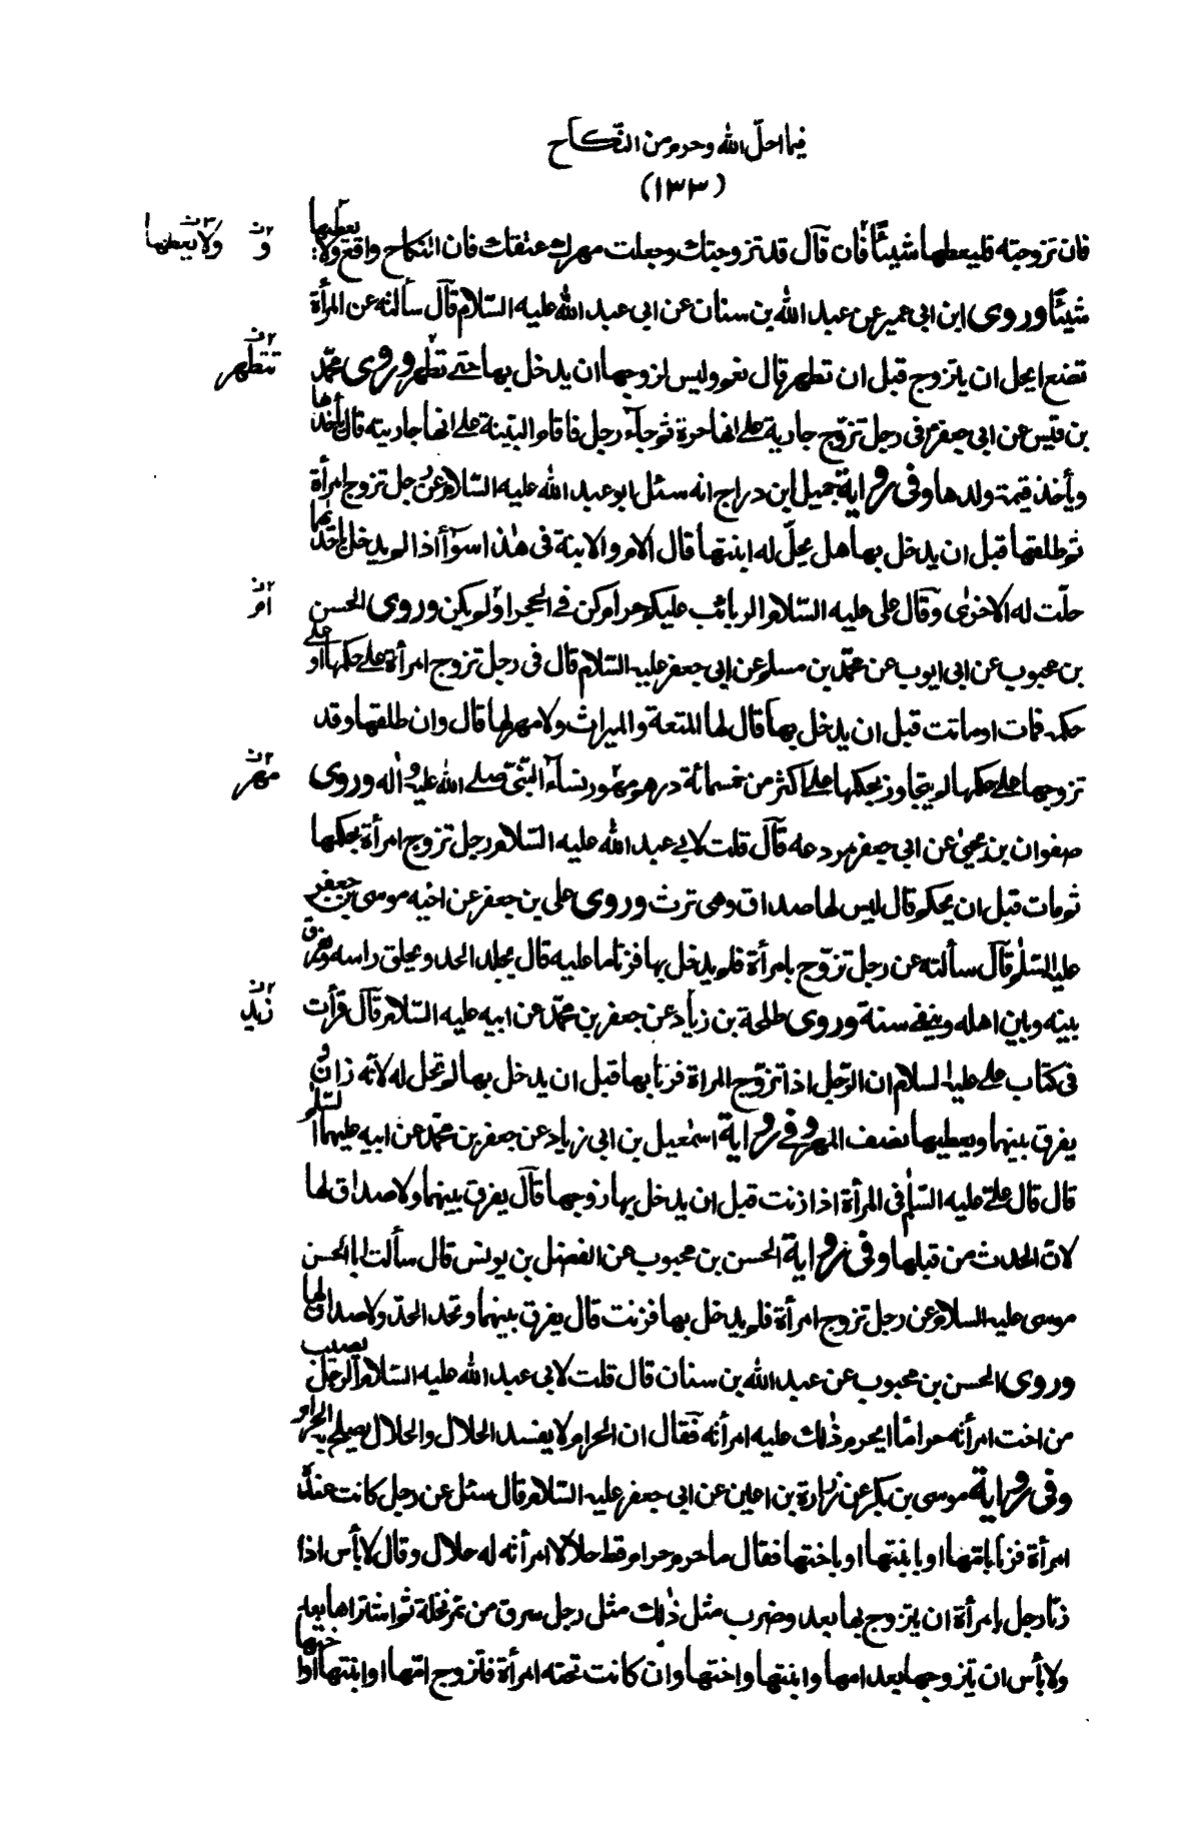 فيما احلّ الله وحرم من النّكاح
(١٣٣)
فان تزوجته فليعطها شيئًا فان قال قد تزوجتك وجعلت مهرك عتقك فان النكاح واقع ولا يعطيها
و ٢ن ولا يعطها ٣ن
شيئًا وروى ابن ابى عمير عن عبد الله بن سنان عن ابى عبد الله عليه السّلام قال سألته عن المرأة
تضع ايحل ان يتزوج قبل ان تطهر قال نعم وليس لزوجها ان يدخل بها حتى تطهر وروى محمّد
تتطهر ٢ن
بن قيس عن ابى جعفر ع فى رجل تزوّج جارية على انها حرة ثم جآء رجل فاقام البيّنة على انها جاريته قال يأخذها
ويأخذ قيمة ولدها وفى رواية جميل ابن دراج انه سئل ابو عبد الله عليه السّلام عن رجل تزوج امرأة
ثم طلقها قبل ان يدخل بها هل يحلّ له ابنتها قال الام والابنة فى هذا سوآء اذا لم يدخل باحدٰهما
حلّت له الاخرٰى وقال على عليه السّلام الربائب عليكم حرام كن فى الحجر او لم يكن وروى الحسن
ام ٢ن
بن محبوب عن ابى ايوب عن محمّد بن مسلم عن ابى جعفر عليه السّلام قال فى رجل تزوج امرأة على حكمها او على
حكمه فمات او ماتت قبل ان يدخل بها قال لها المتعة والميراث ولا مهر لها قال وان طلقها وقد
تزوجها على حكمها لم يتجاوز بحكمها على اكثر من خمسمائة درهم مهور نسآء النّبىّ صلى الله عليه وآله وروى
مهر ٢ن
صفوان بن يحيىٰ عن ابى جعفر مردعه قال قلت لابى عبد الله عليه السّلام رجل تزوج امرأة بحكمها
ثم مات قبل ان يحكم قال ليس لها صداق وهى ترث وروى على بن جعفر عن اخيه موسى بن جعفر
عليه السّلم قال سألته عن رجل تزوّج بامرأة فلم يدخل بها فزنا ما عليه قال يجلد الحد ويحلق راسه ويفرق
بينه وبين اهله وينفى سنة وروى طلحة بن زياد عن جعفر بن محمّد عن ابيه عليه السّلام قال قرأت
زيد ٢ن
فى كتاب على عليه السلام ان الرّجل اذا تزوّج المراة فزنا بها قبل ان يدخل بها لم تحل له لانّه زان و
يفرق بينهما ويعطيها نصف المهر وفى رواية اسمٰعيل بن ابى زياد عن جعفر بن محمّد عن ابيه عليهما السّلم
قال قال علىّ عليه السّلم فى المرأة اذا زنت قبل ان يدخل بها زوجها قال يفرق بينهما ولا صداق لها
لانّ الحدث من قبلها وفى رواية الحسن بن محبوب عن الفضل بن يونس قال سألت ابا الحسن
موسى عليه السلام عن رجل تزوج امرأة فلم يدخل بها فزنت قال يفرق بينهما وتحد الحدّ ولا صداق لها
وروى الحسن بن محبوب عن عبد الله بن سنان قال قلت لابى عبد الله عليه السّلام الرّجل يصيب
من اخت امرأته حرامًا ايحرم ذٰلك عليه امرأته فقال ان الحرام لا يفسد الحلال والحلال يصلح به الحرام
وفى رواية موسى بن بكر عن زرارة بن اعين عن ابى جعفر عليه السّلام قال سئل عن رجل كانت عنده
امرأة فزنا بامّها او بابنتها او باختها فقال ما حرم حرام قط حلالا امرأته له حلال وقال لا بأس اذا
زنا رجل بامرأة ان يتزوج بها بعد وضرب مثل ذٰلك مثل رجل سرق من تمر نخلة ثم اشتراها بعد
ولا بأس ان يتزوجها بعد امها وابنتها واختها وان كانت تحته امرأة فتزوج امّها او ابنتها او اختها